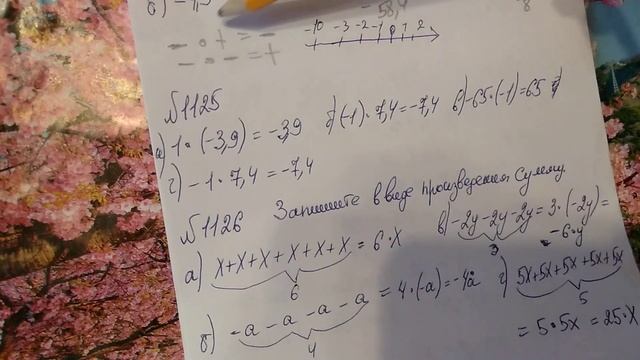 - · + = -
- · - = +
58,4
8
-10 -3 -2 -1 0 1 2
№1125
а) 1 · (-3,9) = -3,9 б) (-1) · 7,4 = -7,4 в) -65 · (-1) = 65
г) -1 · 7,4 = -7,4
№1126 Запишите в виде произведения сумму.
а) x+x+x+x+x+x = 6·x
6
в) -2y -2y -2y = 3·(-2y) =
3
-6·y
б) -a -a -a -a = 4·(-a) = -4a
4
г) 5x+5x+5x+5x+5x
5
= 5·5x = 25·x